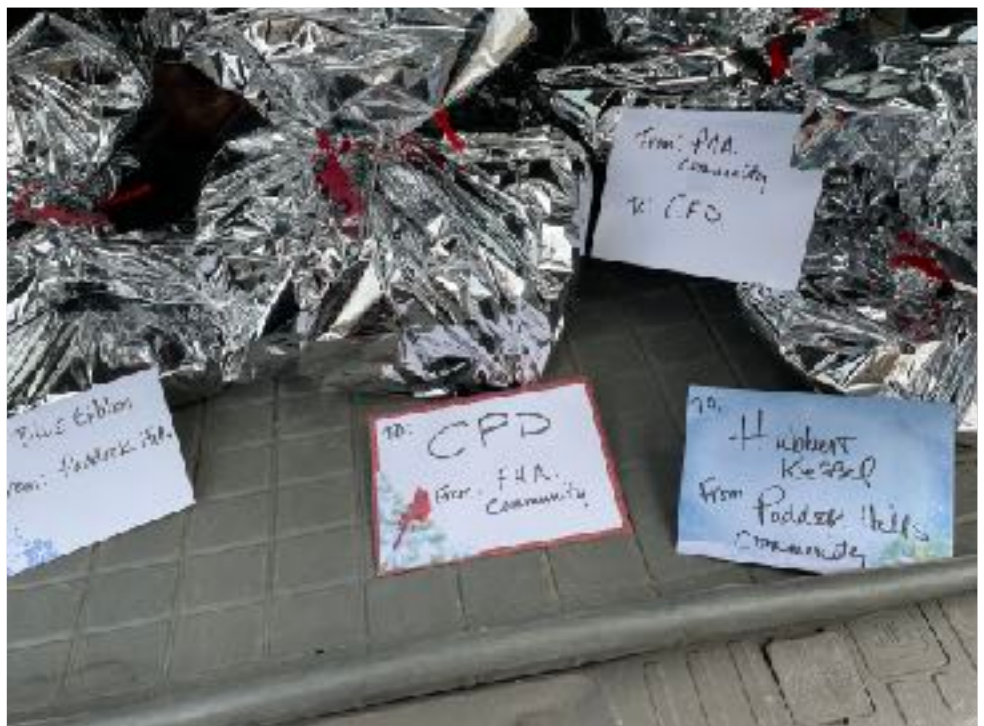 From: PHA.
Community
To: CFD
Blue Emblem
From: Paddock Hills
TO:
CPD
From: PHA.
Community
TO:
Hubbert
Kessel
From
Paddock Hills
Community